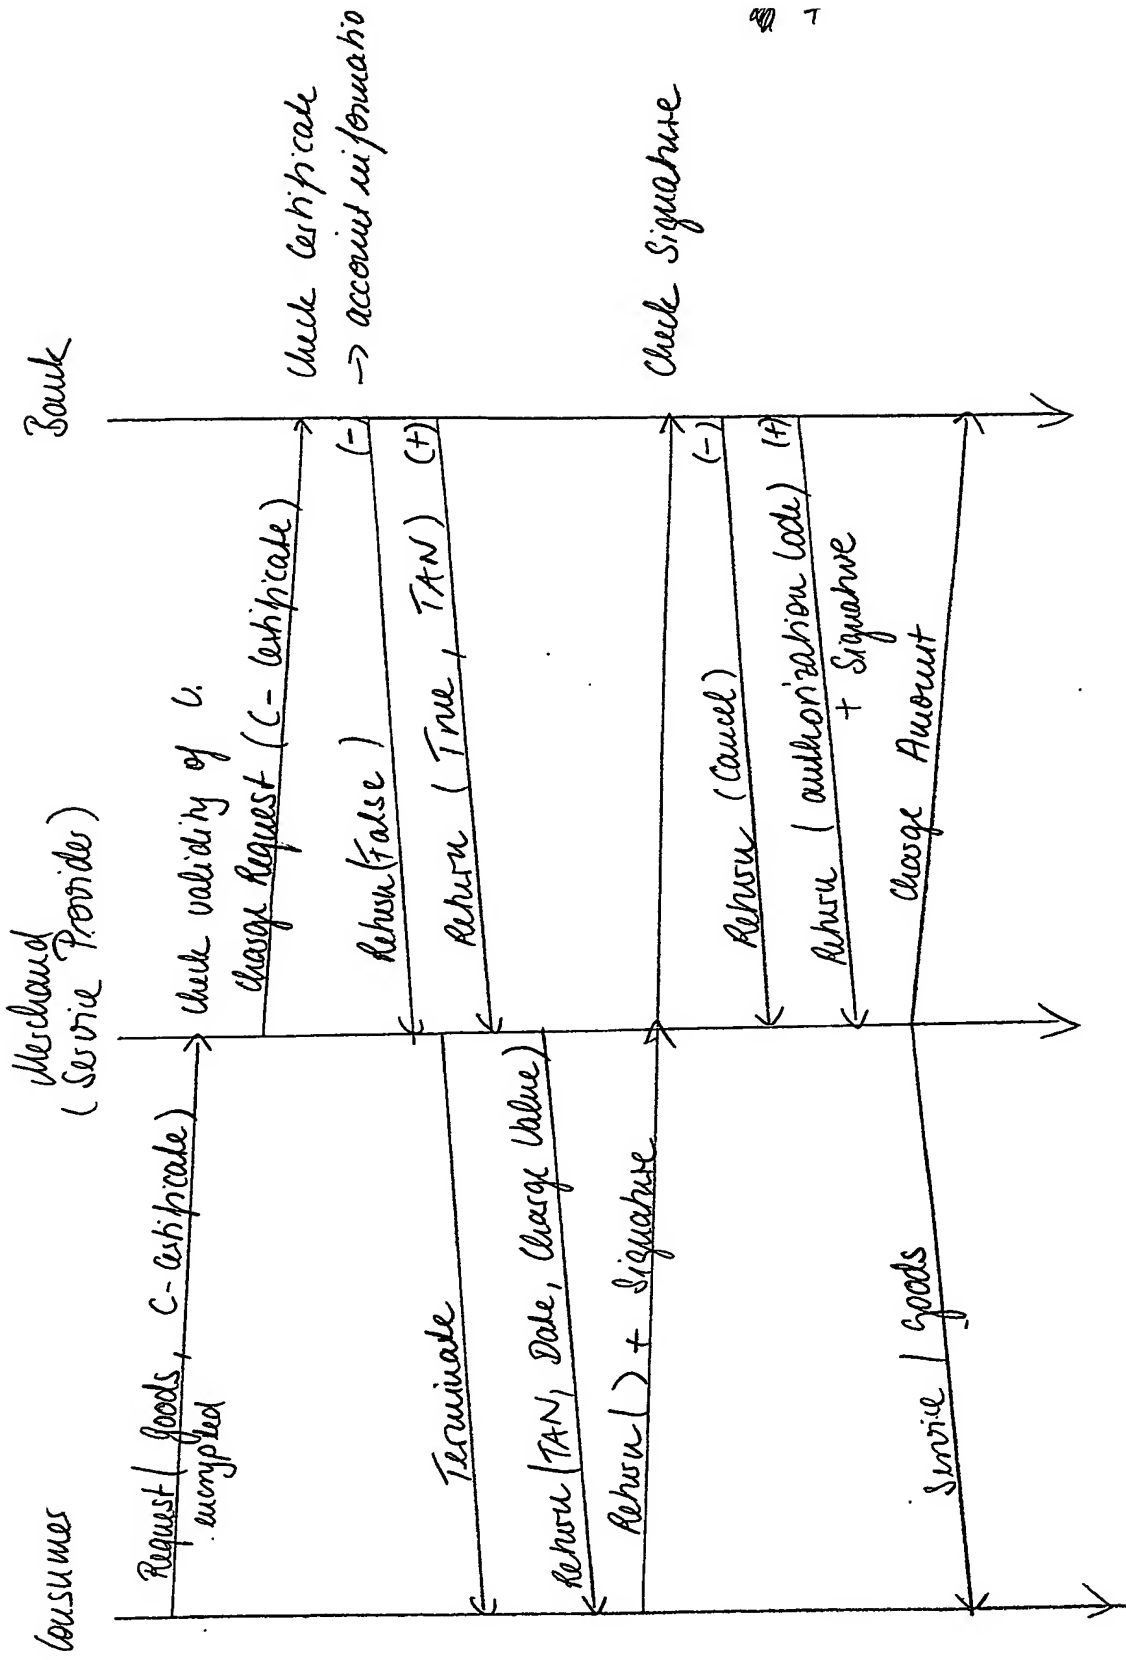 Consumer
Merchand
(Service Provider)
Bank
Request (goods, C-Certificate)
encrypted
check validity of C.
Charge Request (C-Certificate)
Check Certificate
→ account informatio
Return (False)
(-)
Return (True, TAN)
(+)
Terminate
Return (TAN, Date, Charge Value)
Return () + Signature
Check Signature
Return (Cancel)
(-)
Return (authorization Code)
(+)
+ Signature
Charge Amount
Service / goods